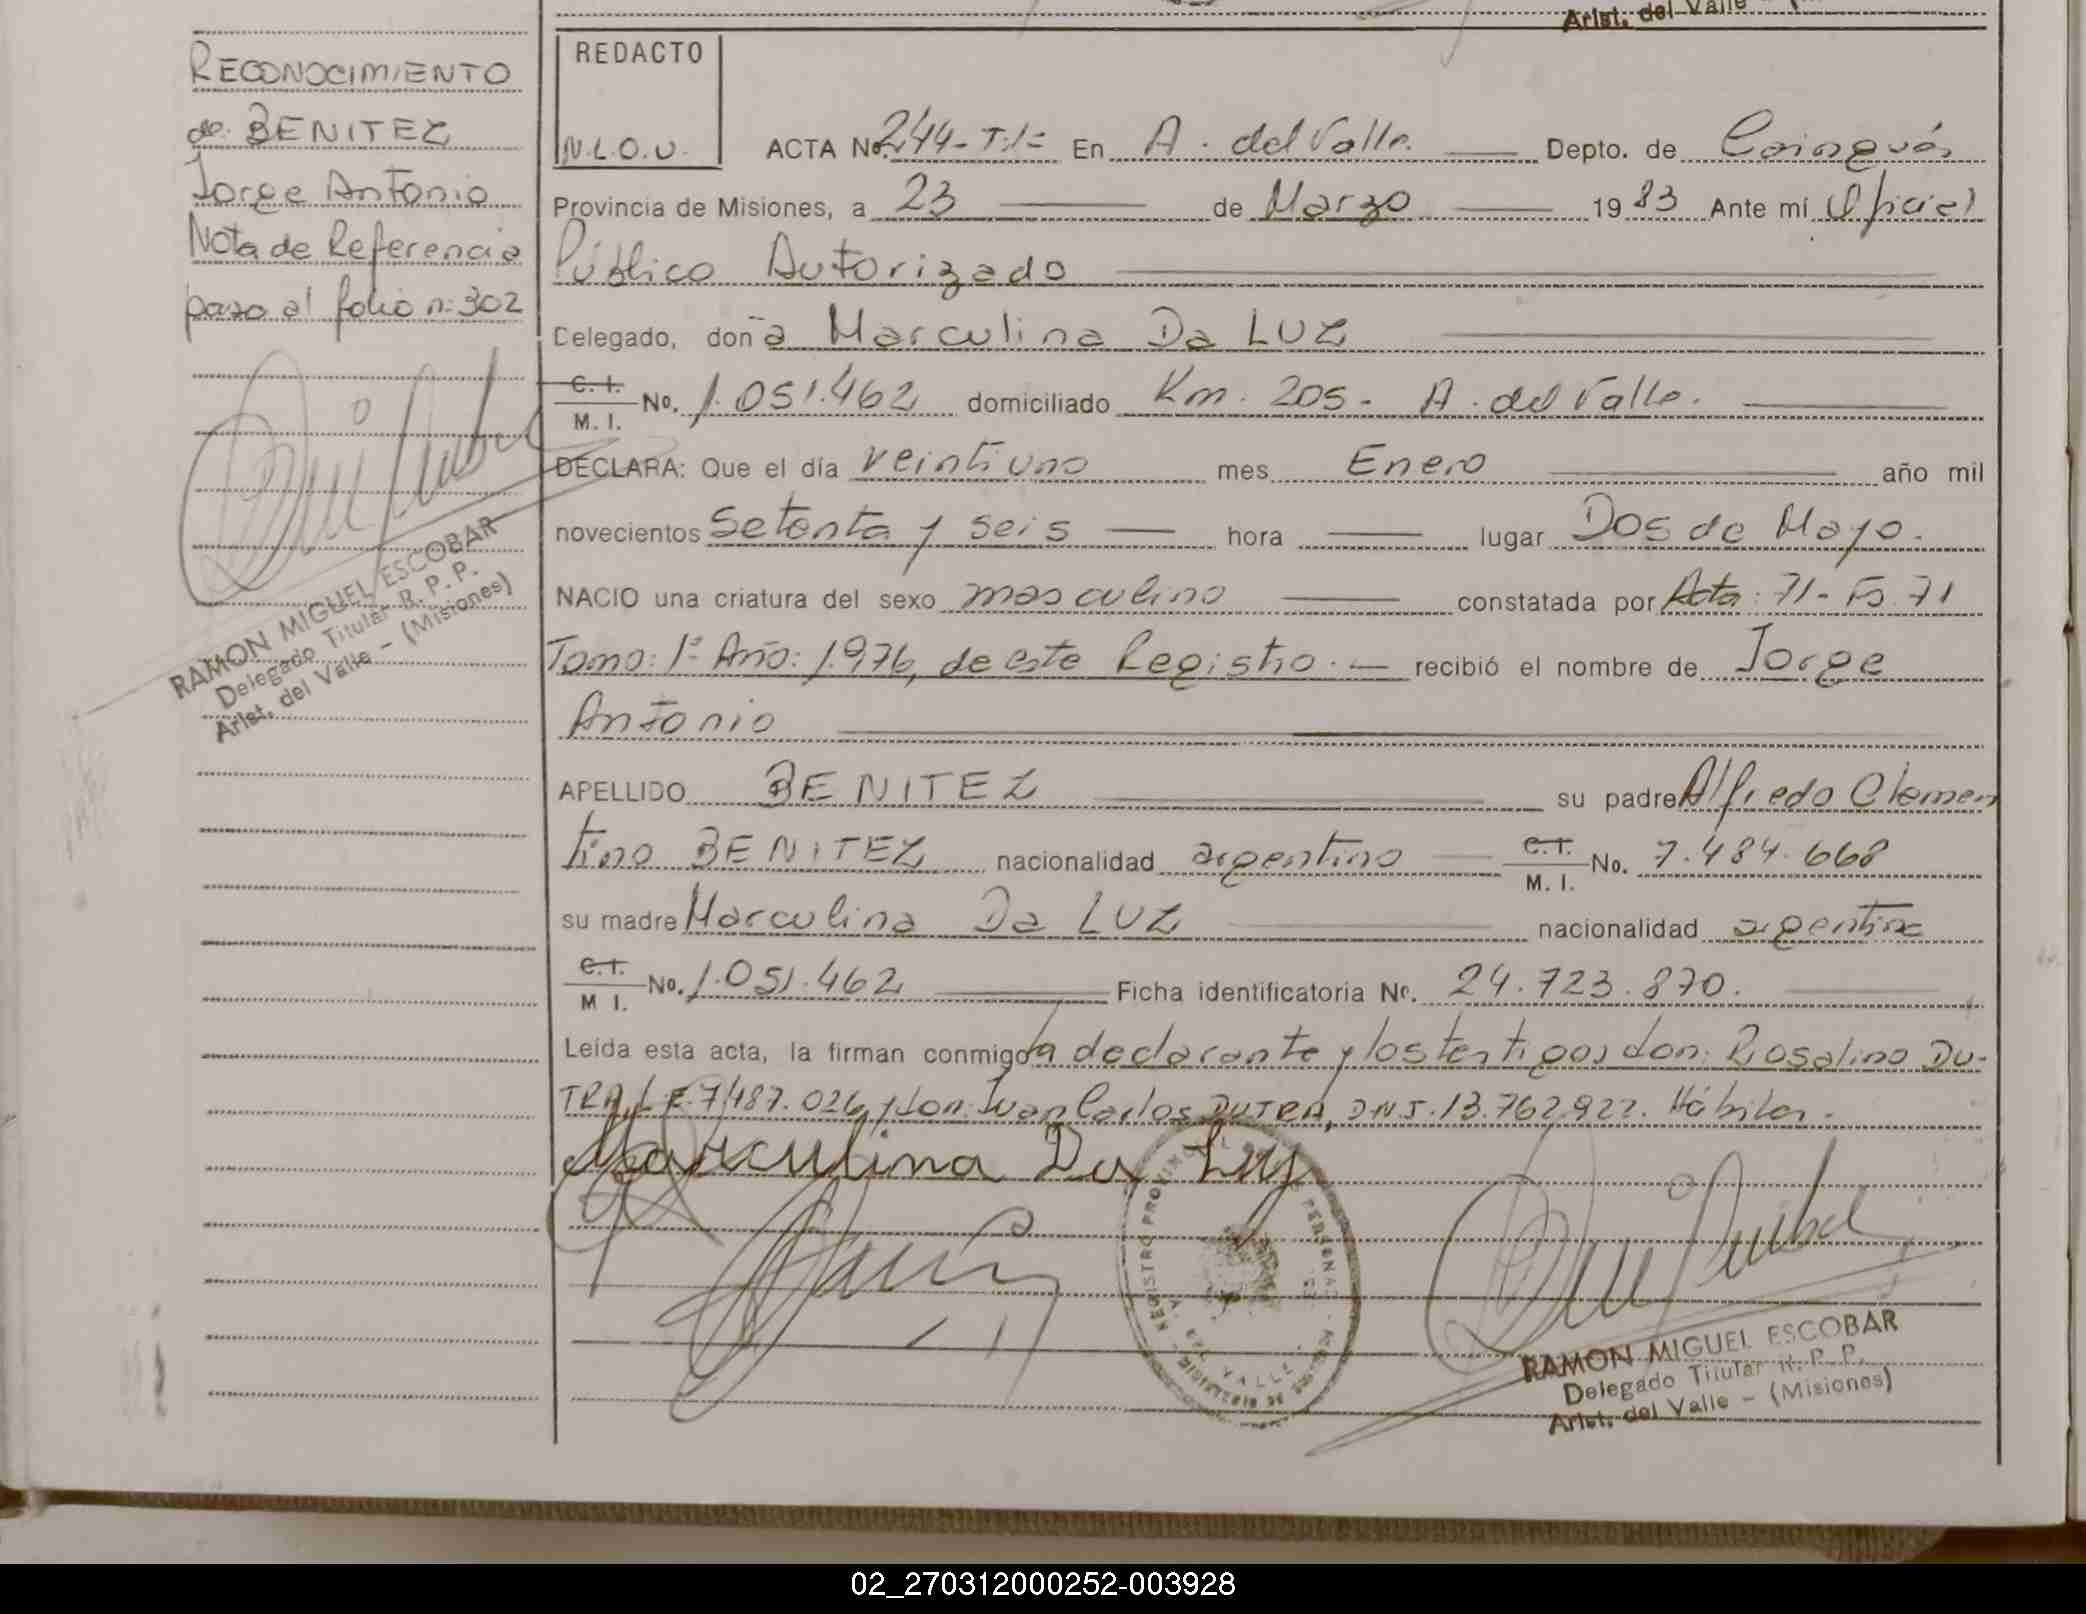 Arist. del Valle
RECONOCIMIENTO
de BENITEZ
Jorge Antonio
Nota de Referencia
paso al folio n: 302
RAMON MIGUEL ESCOBAR
Delegado Titular R. P. P.
Arist. del Valle - (Misiones)
REDACTO
N.L.O.U.
ACTA No. 244-T:1= En A. del Valle. Depto. de Cainguás
Provincia de Misiones, a 23 de Marzo 1983 Ante mí Oficial
Público Autorizado
Delegado, doña Marculina Da LUZ
C. I. / M. I. No. 1.051.462 domiciliado Km. 205- A. del Valle.
DECLARA: Que el día veintiuno mes Enero año mil
novecientos setenta y seis hora lugar Dos de Mayo.
NACIO una criatura del sexo masculino constatada por Acta: 71- Fo. 71
Tomo: 1º Año: 1.976, de este Registro.- recibió el nombre de Jorge
Antonio
APELLIDO BENITEZ su padre Alfredo Clemen
tino BENITEZ nacionalidad argentino C. I. / M. I. No. 7.484.668
su madre Marculina Da LUZ nacionalidad argentina
C. I. / M I. No. 1.051.462 Ficha identificatoria No. 24.723.870.
Leída esta acta, la firman conmigo la declarante y los testigos don: Rosalino DU-
TRA, L.E. 7.487.026 y don: Juan Carlos DUTRA, DNI. 13.762.922. Hábiles.
Marculina Da Luz
REGISTRO PROVINCIAL PERSONAS
A. DEL VALLE
RAMON MIGUEL ESCOBAR
Delegado Titular R. P. P.
Arist. del Valle - (Misiones)
02_270312000252-003928